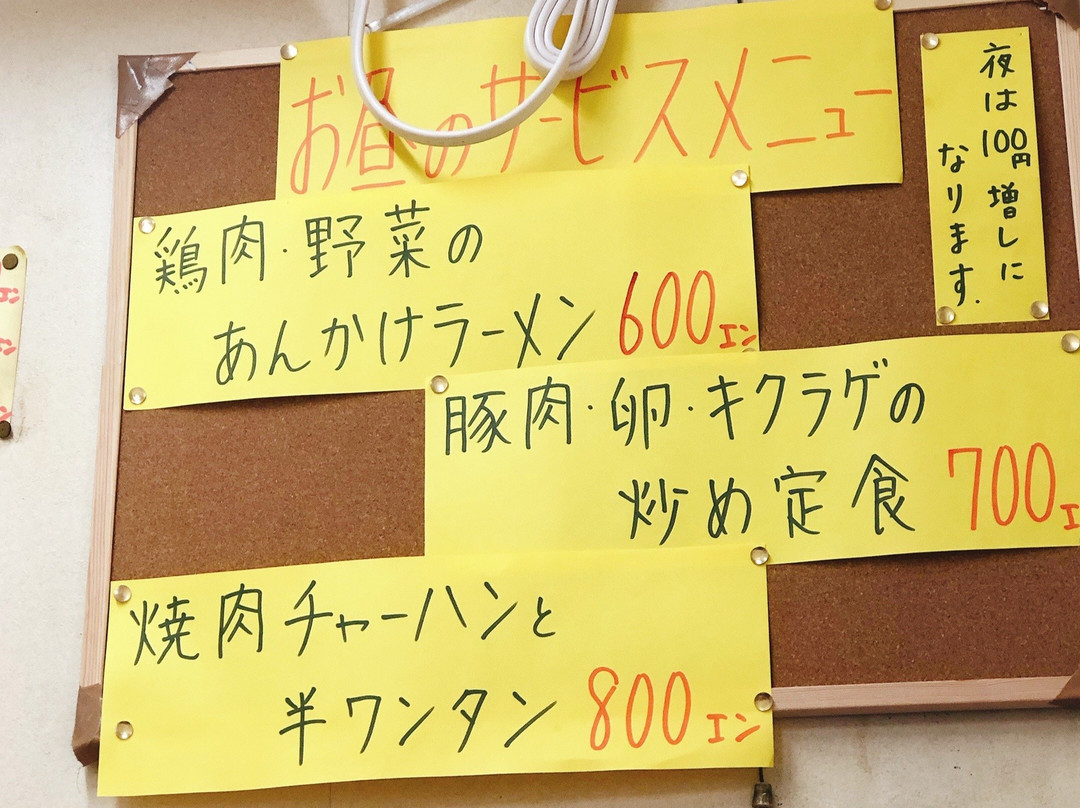 お昼のサービスメニュー
夜は100円増しに
なります.
鶏肉・野菜の
あんかけラーメン 600エン
豚肉・卵・キクラゲの
炒め定食 700エ
焼肉チャーハンと
半ワンタン 800エン
エン
エン
エン